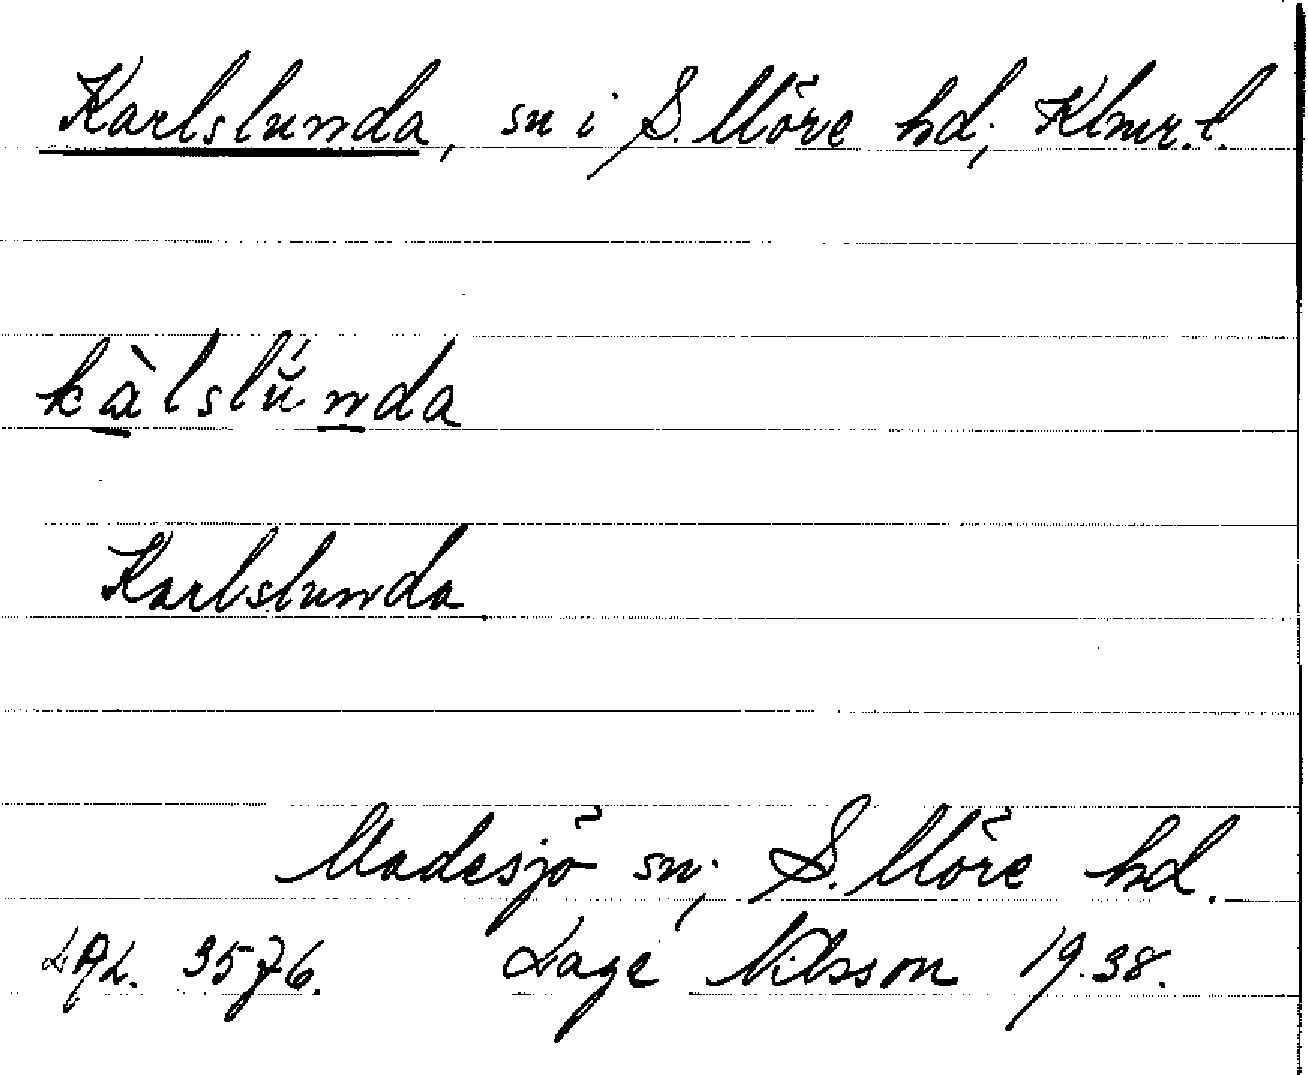 Karlslunda, sn i S. Möre hd; Klmr. l.
kàlslŭ́nda
Karlslunda
Madesjö sn; S. Möre hd.
LAL. 3576. Lage Nilsson 1938.